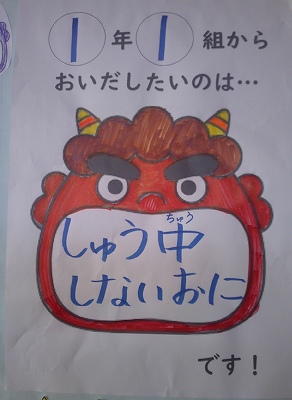 1年1組から
おいだしたいのは…
しゅう中
ちゅう
しないおに
です！